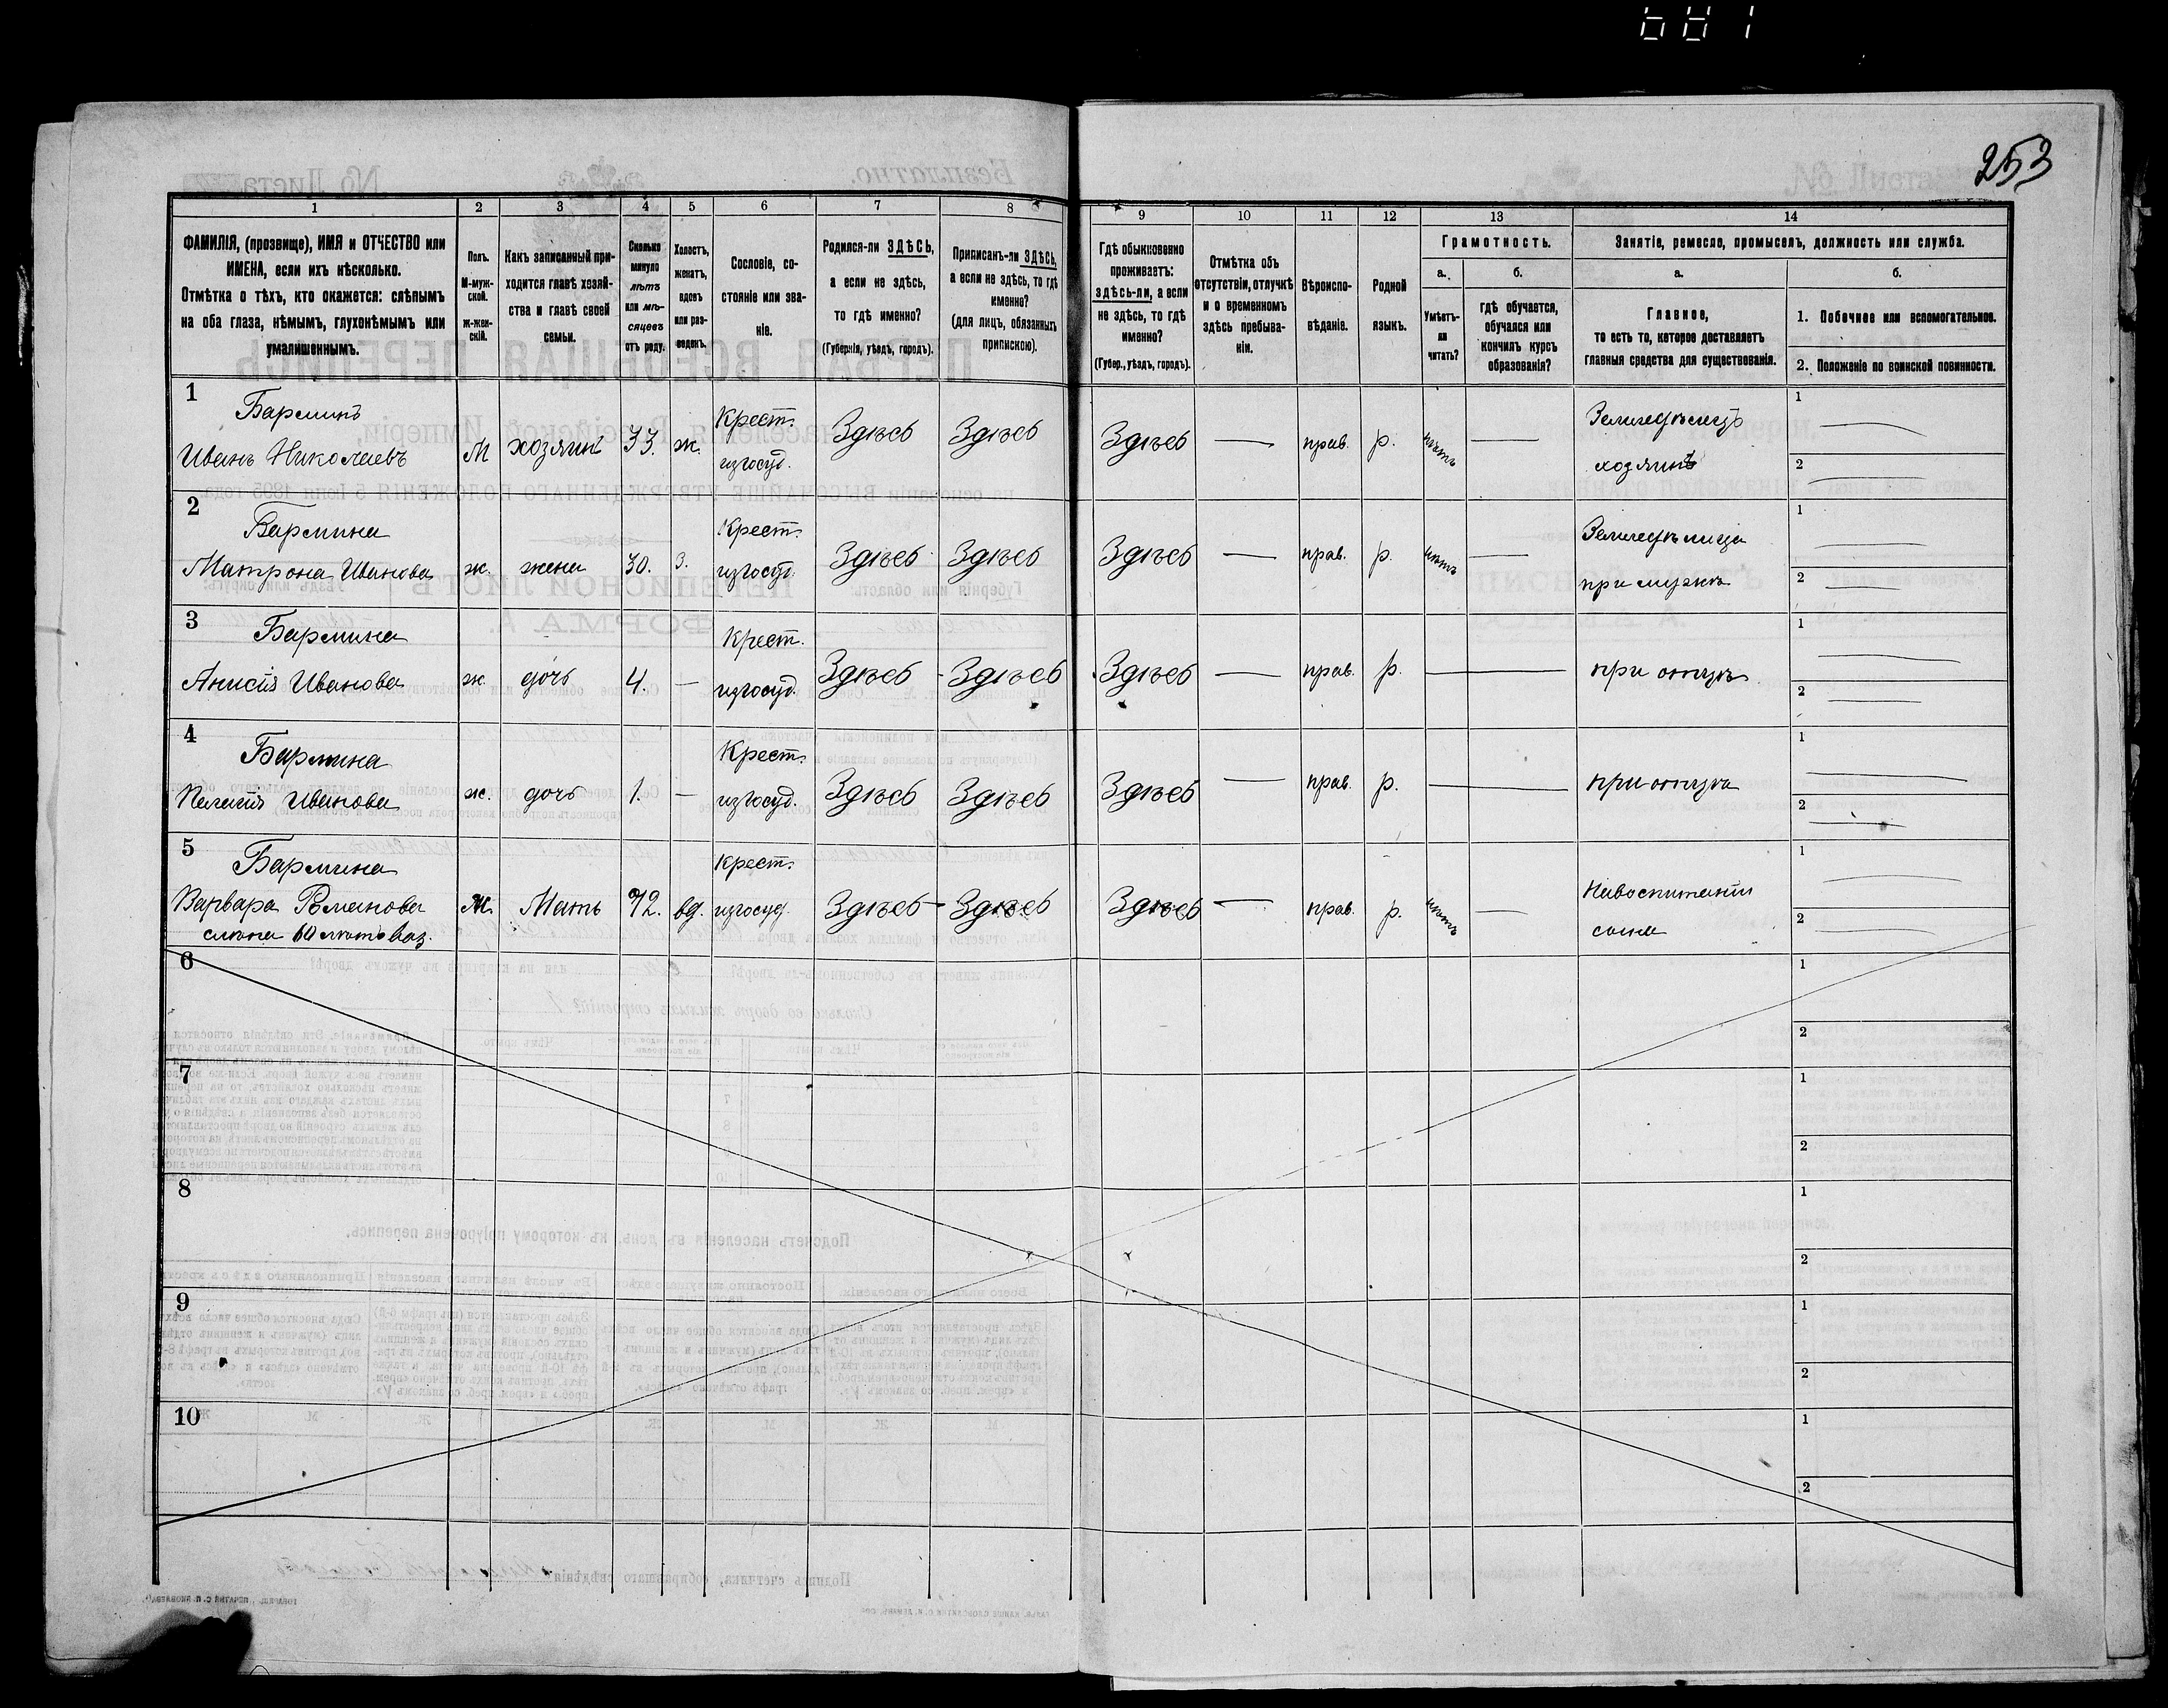 253
1 2 3 4 5 6 7 8 9 10 11 12 13 14
ФАМИЛІЯ, (прозвище), ИМЯ и ОТЧЕСТВО или
ИМЕНА, если ихъ нѣсколько.
Отмѣтка о тѣхъ, кто окажется: слѣпымъ
на оба глаза, нѣмымъ, глухонѣмымъ или
умалишеннымъ.
Полъ.
М-муж-
ской.
ж-жен-
скій.
Какъ записанный при-
ходится главѣ хозяй-
ства и главѣ своей
семьи.
Сколько
минуло
лѣтъ
или мѣ-
сяцевъ
отъ роду.
Холостъ,
женатъ,
вдовъ
или раз-
веденъ.
Сословіе, со-
стояніе или зва-
ніе.
Родился-ли ЗДѢСЬ,
а если не здѣсь,
то гдѣ именно?
(Губернія, уѣздъ, городъ).
Приписанъ-ли ЗДѢСЬ,
а если не здѣсь, то гдѣ
именно?
(для лицъ, обязанныхъ
припискою).
Гдѣ обыкновенно
проживаетъ:
здѣсь-ли, а если
не здѣсь, то гдѣ
именно?
(Губер., уѣздъ, городъ).
Отмѣтка объ
отсутствіи, отлучкѣ
и о временномъ
здѣсь пребыва-
ніи.
Вѣроиспо-
вѣданіе.
Родной
языкъ.
Грамотность.
а.
Умѣетъ-
ли
читать?
б.
гдѣ обучается,
обучался или
кончилъ курсъ
образованія?
Занятіе, ремесло, промыселъ, должность или служба.
а.
Главное,
то есть то, которое доставляетъ
главныя средства для существованія.
б.
1. Побочное или вспомогательное.
2. Положеніе по воинской повинности.
1
Барминъ
Иванъ Николаевъ М хозяинъ 33. ж. Крест. изгосуд. Здѣсь Здѣсь Здѣсь — прав. р. нѣтъ — Земледѣлецъ
хозяинъ
1 —
2 —
2
Бармина
Матрона Иванова ж. жена 30. з. Крест. изгосуд. Здѣсь Здѣсь Здѣсь — прав. р. нѣтъ — Земледѣлица
при мужѣ
1 —
2 —
3
Бармина
Анисія Иванова ж дочь 4. — Крест. изгосуд. Здѣсь Здѣсь Здѣсь — прав. р. — при отцѣ
1 —
2 —
4
Бармина
Пелагія Иванова ж. дочь 1. — Крест. изгосуд. Здѣсь Здѣсь Здѣсь — прав. р. — при отцѣ
1 —
2 —
5
Бармина
Варвара Романова ж. Мать 72. вд. Крест. изгосуд. Здѣсь Здѣсь Здѣсь — прав. р. нѣтъ — Навоспитаніи
сына
слѣпа
1 —
2 —
6 1
2
7 1
2
8 1
2
9 1
2
10 1
2